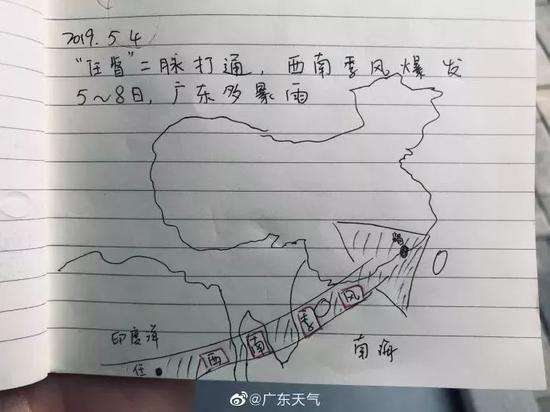 2019.5.4
"任督"二脉打通，西南季风爆发
5～8日，广东多暴雨
督
印度洋
西南季风
任
南海
@广东天气